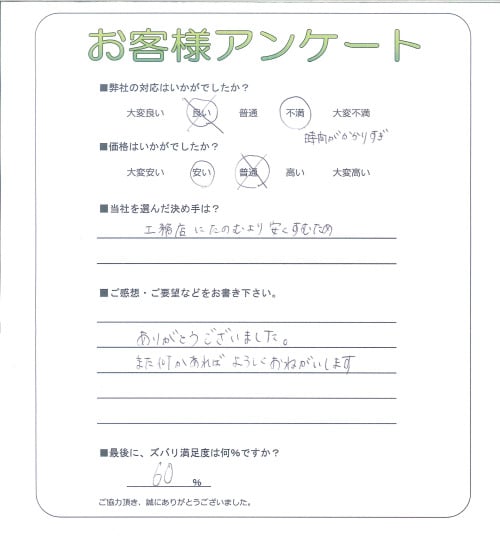 お客様アンケート
■弊社の対応はいかがでしたか？
大変良い 良い 普通 不満 大変不満
時間がかかりすぎ
■価格はいかがでしたか？
大変安い 安い 普通 高い 大変高い
■当社を選んだ決め手は？
工務店にたのむより安くすむため
■ご感想・ご要望などをお書き下さい。
ありがとうございました。
また何かあればよろしくおねがいします
■最後に、ズバリ満足度は何%ですか？
60 %
ご協力頂き、誠にありがとうございました。